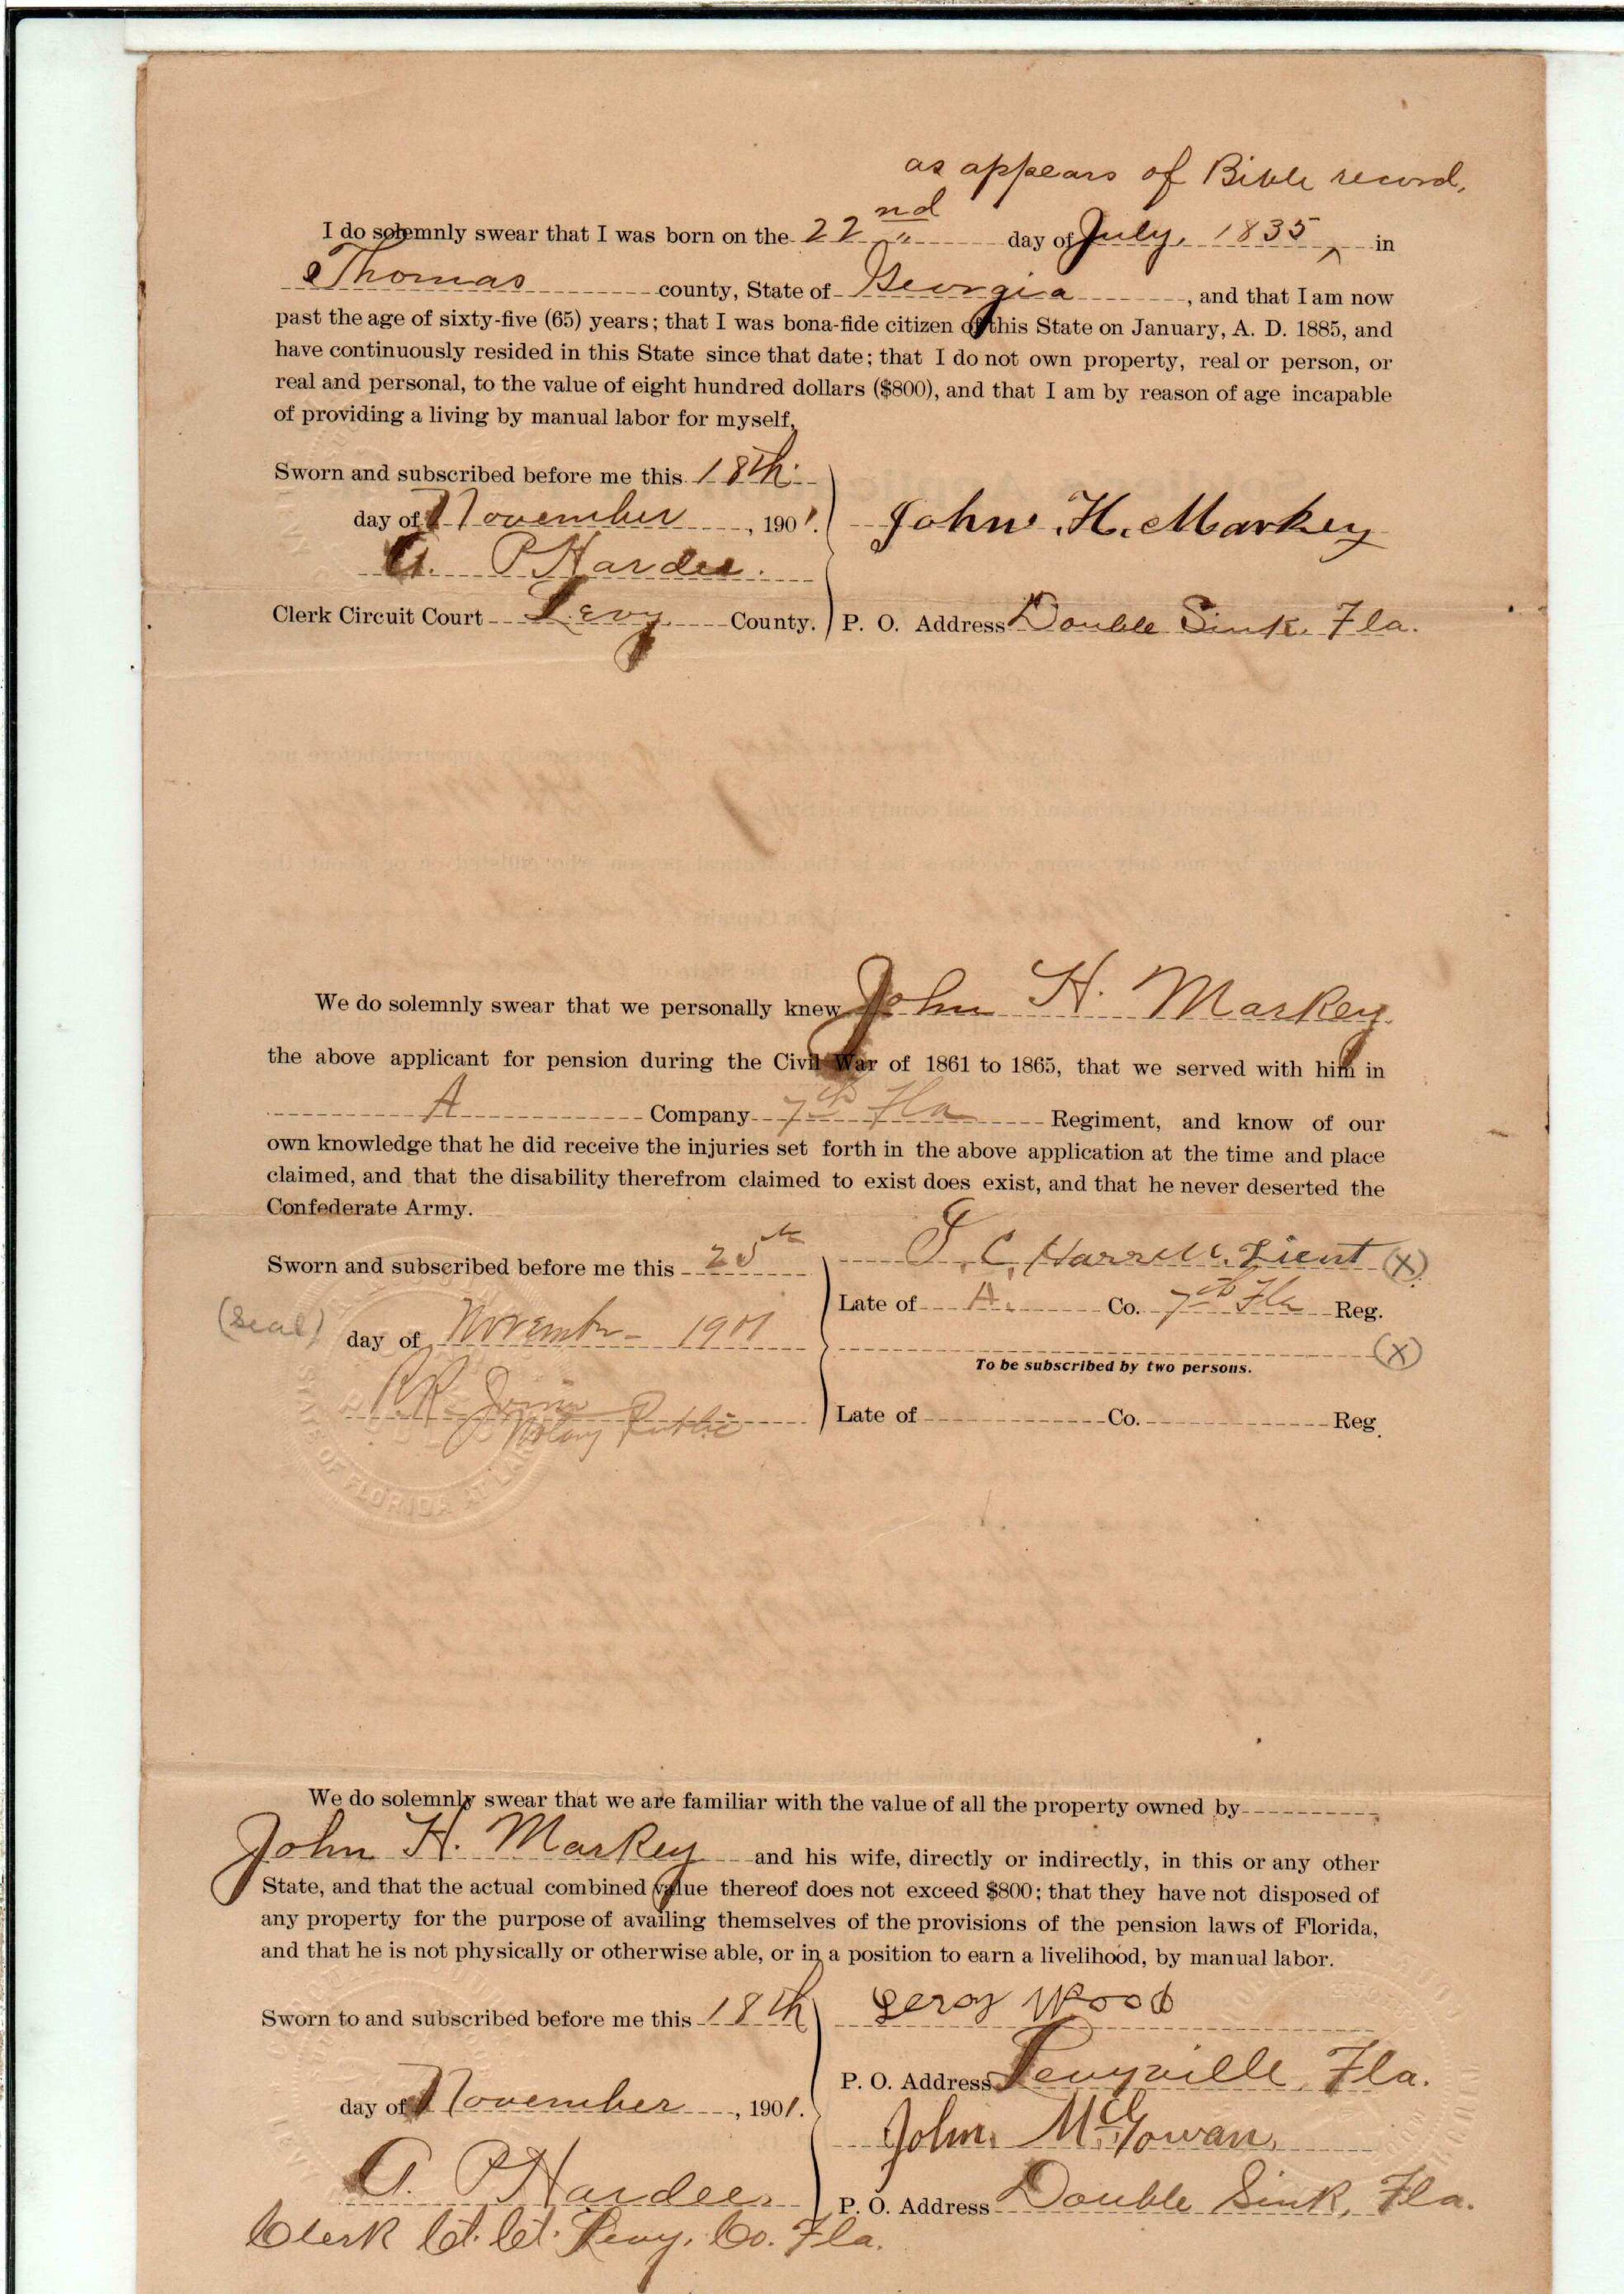 as appears of Bible record,
I do solemnly swear that I was born on the 22nd day of July, 1835 ^ in
Thomas county, State of Georgia, and that I am now
past the age of sixty-five (65) years; that I was bona-fide citizen of this State on January, A. D. 1885, and
have continuously resided in this State since that date; that I do not own property, real or person, or
real and personal, to the value of eight hundred dollars ($800), and that I am by reason of age incapable
of providing a living by manual labor for myself,
Sworn and subscribed before me this 18th
day of November, 1901. John H. Markey
A. P Hardee.
Clerk Circuit Court Levy County. P. O. Address Double Sink, Fla.
We do solemnly swear that we personally knew John H. Markey
the above applicant for pension during the Civil War of 1861 to 1865, that we served with him in
A Company 7th Fla Regiment, and know of our
own knowledge that he did receive the injuries set forth in the above application at the time and place
claimed, and that the disability therefrom claimed to exist does exist, and that he never deserted the
Confederate Army.
Sworn and subscribed before me this 25th C. Harrell, Lieut (X)
Late of A. Co. 7th Fla Reg.
(Seal) day of November 1901
(X)
To be subscribed by two persons.
Notary Public
Late of Co. Reg.
STATE OF FLORIDA AT LARGE
We do solemnly swear that we are familiar with the value of all the property owned by
John H. Markey and his wife, directly or indirectly, in this or any other
State, and that the actual combined value thereof does not exceed $800; that they have not disposed of
any property for the purpose of availing themselves of the provisions of the pension laws of Florida,
and that he is not physically or otherwise able, or in a position to earn a livelihood, by manual labor.
Sworn to and subscribed before me this 18th Leroy Wood
P. O. Address Levyville, Fla.
day of November, 1901.
John McGowan,
A. P Hardee,
P. O. Address Double Sink, Fla.
Clerk Ct. Ct. Levy, Co. Fla.